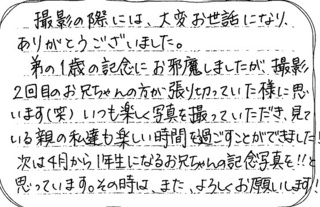 撮影の際には、大変お世話になり、
ありがとうございました。
弟の1歳の記念にお邪魔しましたが、撮影
2回目のお兄ちゃんの方が張り切っていた様に思
います(笑) いつも楽しく写真を撮っていただき、見て
いる親の私達も楽しい時間を過ごすことができました!
次は4月から1年生になるお兄ちゃんの記念写真を!!と
思っています。その時は、また、よろしくお願いします!